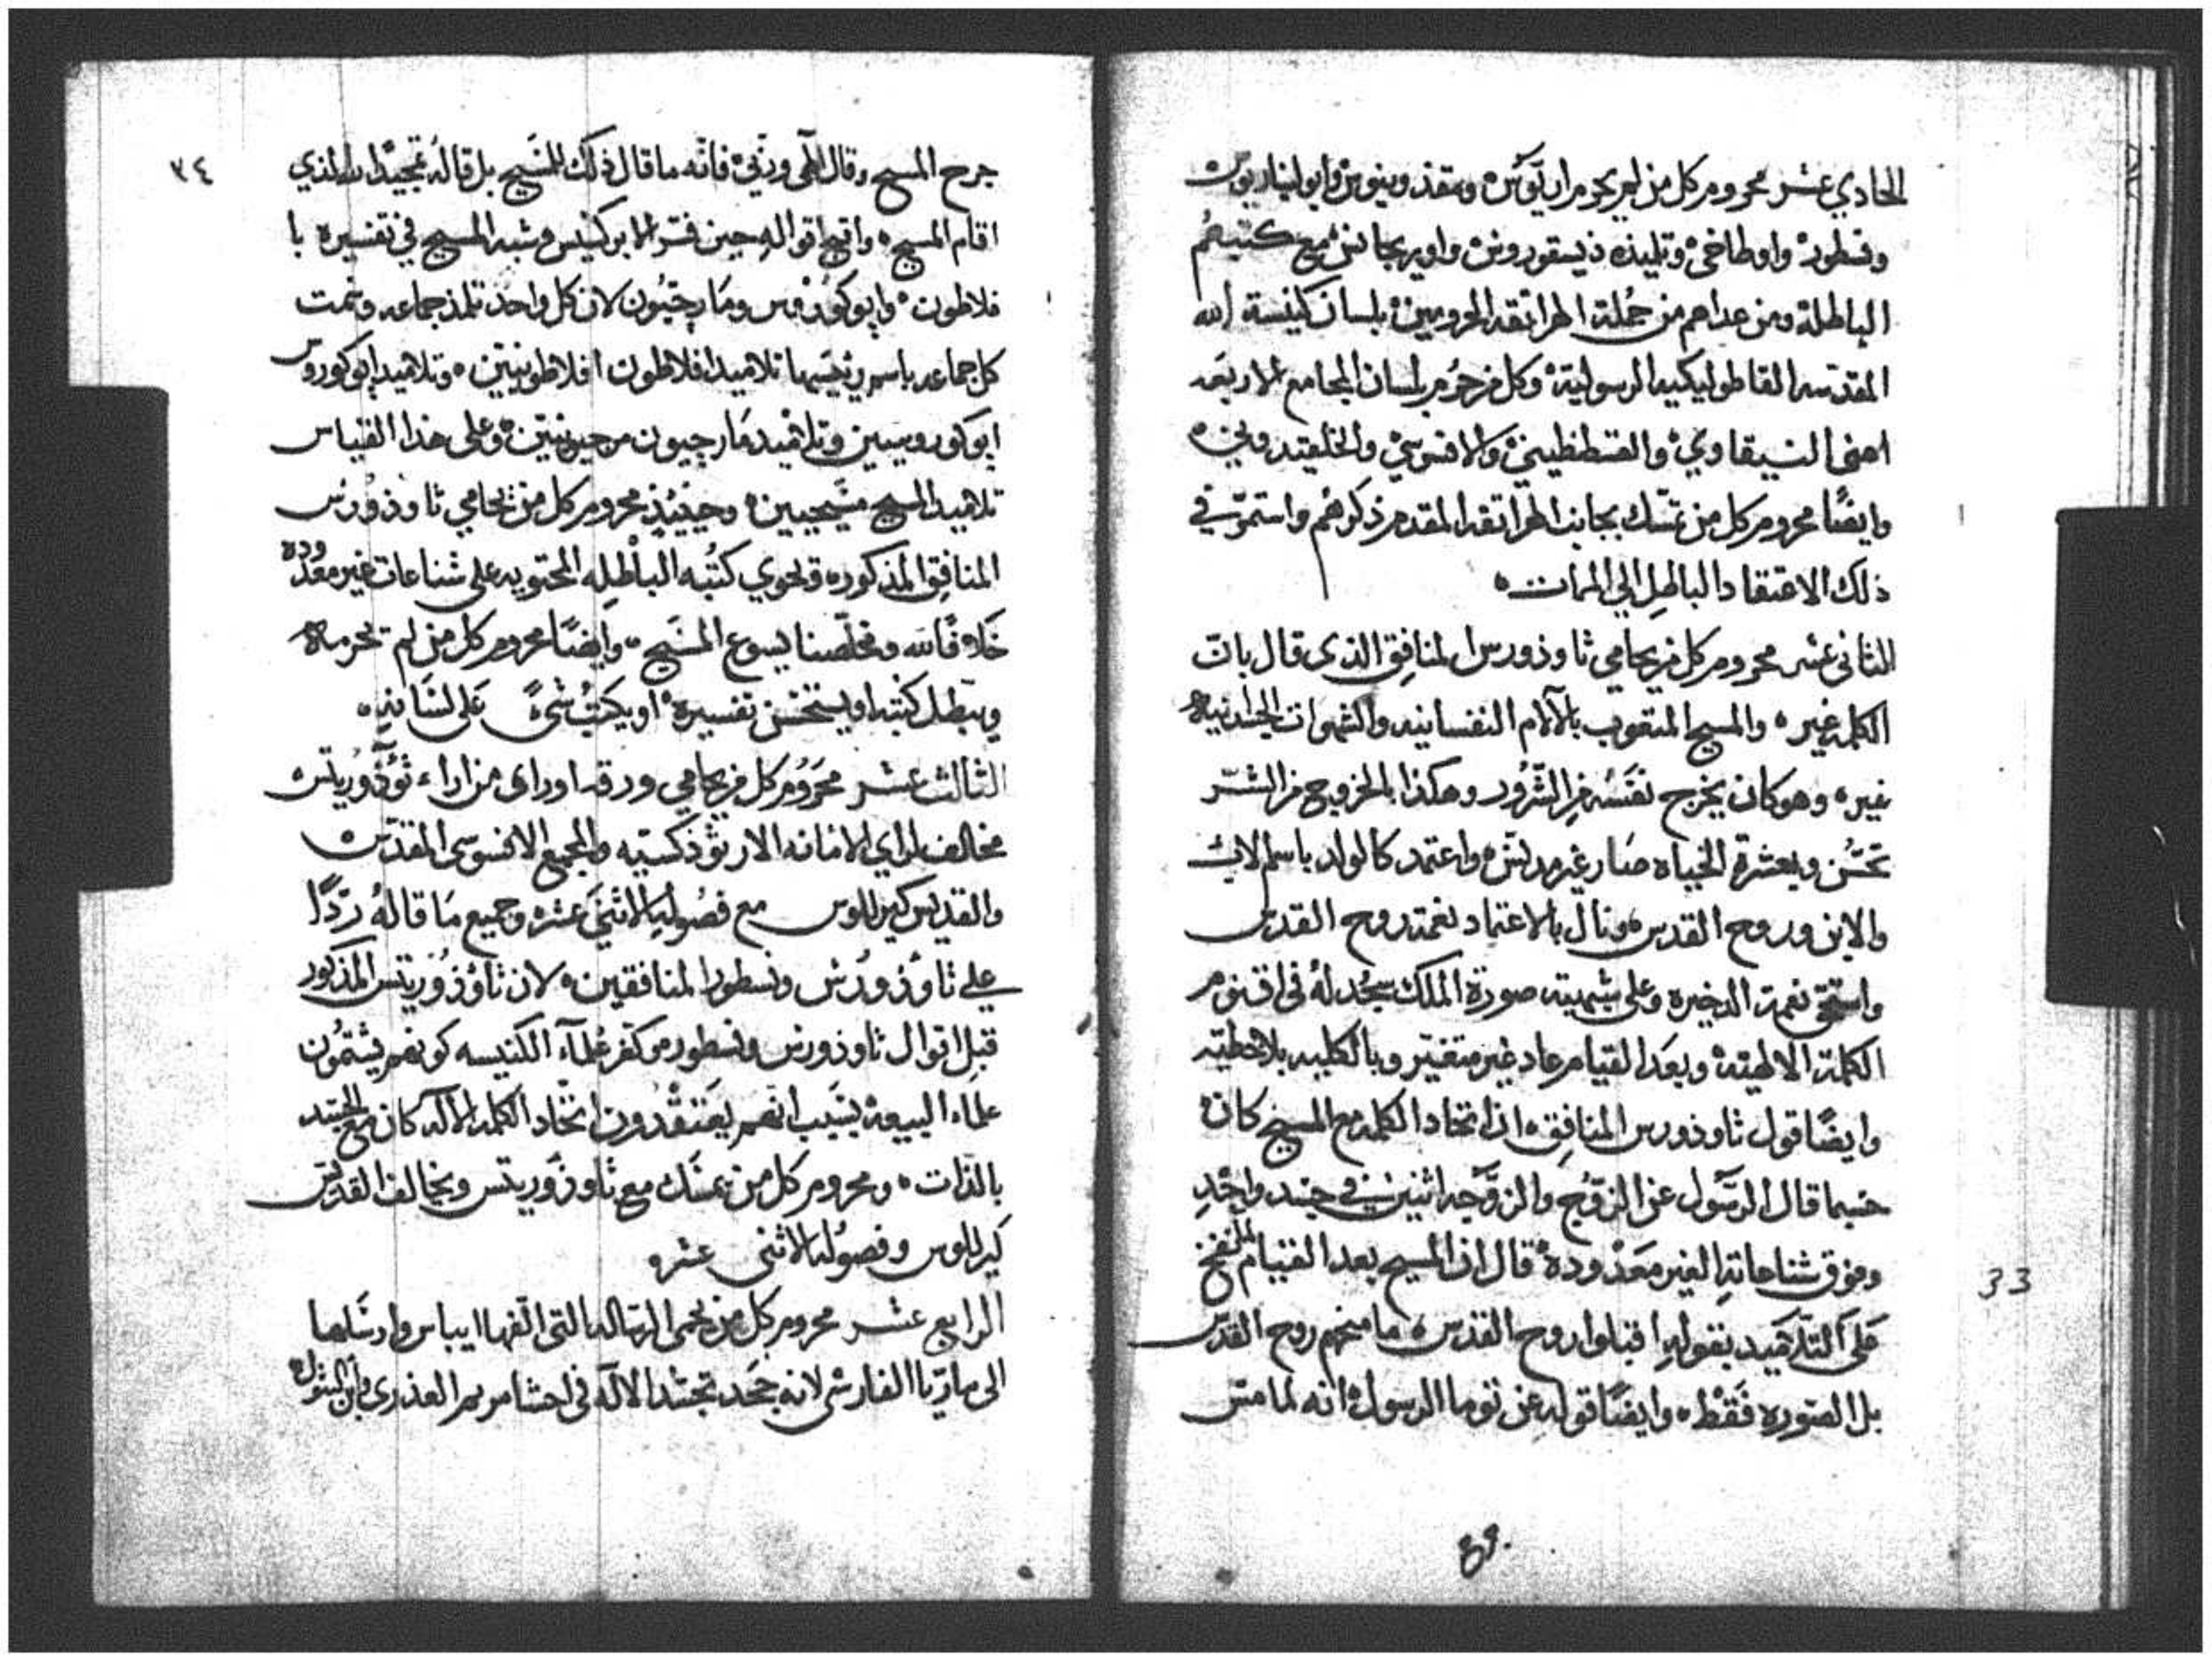 الحادي عشر محروم كل من لم يحرم اريوس ومقذونيوس وابوليناريوس
ونسطور واوطاخي وتلميذه ذيسقوروس واوريجانس مع كتبهم
الباطلة ومن عداهم من جملة الهراتقه المحرومين بلسان كنيسة الله
المقدسه القاطوليكيه الرسولية وكل من حرم بلسان المجامع الاربعه
اعني النيقاوي والقسطنطيني والافسوسي والخلقيدوني
وايضًا محروم كل من تمسك بجانب الهراتقه المقدم ذكرهم واستمر في
ذلك الاعتقاد الباطل الي الممات
الثاني عشر محروم كل من يحامي ثاوذورس المنافق الذي قال بان
الكلمه غيره والمسيح المتعوب بالآلام النفسانيه والشهوات الجسدانيه
غيره وهو كان يخرج نفسه من الشرور وهكذا بالخروج من الشر
تحسن وبعشرة الحياه صار غير مدنس واعتمد كالولد باسم الاب
والابن وروح القدس ونال بالاعتماد نعمة روح القدس
واستحق نعمة الدخيره وعلى شبهيته صورة الملك سجد له في اقنوم
الكلمة الالهية وبعد القيام عاد غير متغير وبالكليه بلا خطيه
وايضًا قول ثاوذورس المنافق ان اتحاد الكلمه مع المسيح كان
حسبما قال الرسول عن الزوج والزوجه اثنين في جسد واحد
وفوق شناعاته الغير معدوده قال ان المسيح بعد القيام لما نفخ
على التلاميد بقوله اقبلوا روح القدس ما منحهم روح القدس
بل الصوره فقط وايضًا قوله عن توما الرسول انه لما مس
33
٣٤
جرح المسيح وقال الهي وربي فانه ما قال ذلك للمسيح بل قاله تمجيدًا لله الذي
اقام المسيح واقبح اقواله حين فسر الابركسيس وشبه المسيح في تفسيره با
فلاطون وابوكوروس ومارجيون لان كل واحد تلمذ جماعه وسمت
كل جماعه باسم رئيسها تلاميد افلاطون افلاطونيين وتلاميد ابوكوروس
ابوكوروسيين وتلاميد مارجيون مرجيونيين وعلى هذا القياس
تلاميد المسيح مسيحيين وحينئذ محروم كل من يحامي ثاوذورس
المنافق المذكوره ويحوي كتبه الباطله المحتويه على شناعات غير معدوده
خلافًا لله ومخلصنا يسوع المسيح وايضًا محروم كل من لم يحرمه
ويبطل كتبه او يستحسن تفسيره او يكتب شيء على لسانه
الثالث عشر محروم كل من يحامي ورقه او راى من اراء ثوذوريتس
مخالف لراي الامانه الارثوذكسيه والمجمع الافسوسي المقدس
والقديس كيرللوس مع فصوله الاثني عشره وجميع ما قاله ردًا
على ثاوذورس ونسطور المنافقين لان ثاوذوريتس المذكور
قبل اقوال ثاوذورس ونسطور وكفر علماء الكنيسه كونهم يشتمون
علماء البيعه بسبب انهم يعتقدون اتحاد الكلمه الاله كان مع الجسد
بالذات ومحروم كل من تمسك مع ثاوذوريتس ويخالف القديس
كيرللوس وفصوله الاثني عشره
الرابع عشر محروم كل من يحمي الرساله التي الفها ايباس وارسلها
الى ماريا الفارسي لانه جحد تجسد الاله في احشا مريم العذرى